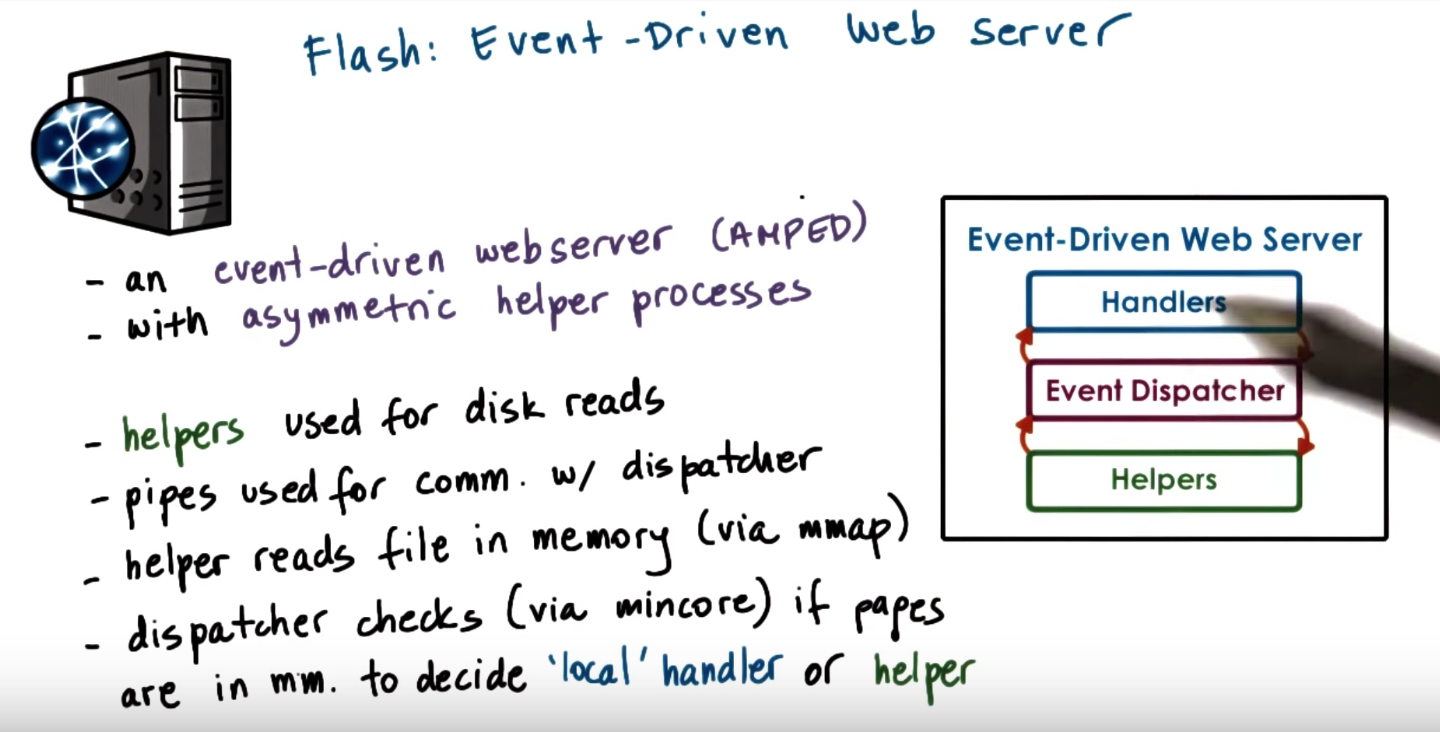 Flash: Event-Driven Web Server
- an event-driven webserver (AMPED)
- with asymmetric helper processes
- helpers used for disk reads
- pipes used for comm. w/ dispatcher
- helper reads file in memory (via mmap)
- dispatcher checks (via mincore) if papes
are in mm. to decide 'local' handler or helper
Event-Driven Web Server
Handlers
Event Dispatcher
Helpers